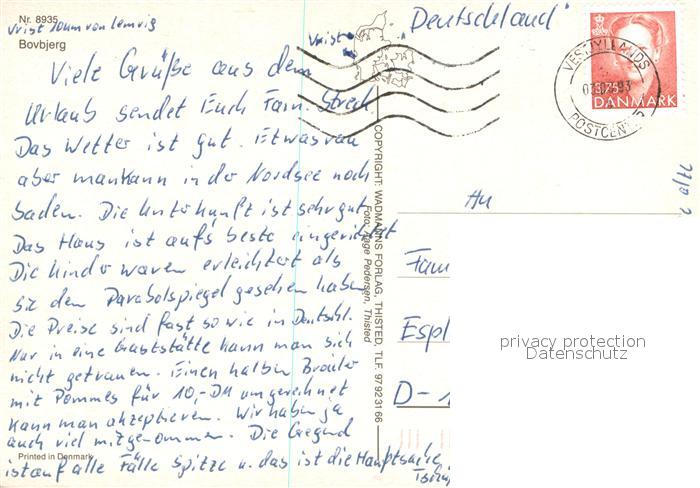 Nr. 8935
Vrist 10 km von Lemvig
Bovbjerg
Vrist
Deutschland
VESTJYLLANDS
POSTCENTER
3.75
DANMARK
Viele Grüße aus dem
Urlaub sendet Euch Fam.
Das Wetter ist gut. Etwas rau
aber man kann in der Nordsee noch
baden. Die Unterkunft ist sehr gut
Das Haus ist aufs beste eingerichtet
Die Kinder waren erleichtert als
sie den Parabolspiegel gesehen haben
Die Preise sind fast so wie in Deutschl.
Nur in eine Gaststätte kann man sich
nicht getrauen. Einen halben Broiler
mit Pommes für 10,-DM umgerechnet
kann man akzeptieren. Wir haben ja
auch viel mitgenommen. Die Gegend
ist auf alle Fälle Spitze u. das ist die Hauptsache
Printed in Denmark
COPYRIGHT: WADMANNS FORLAG, THISTED, TLF. 97 92 31 66
Foto: Aage Pedersen, Thisted
An
Fam
Espl
D-1
privacy protection
Datenschutz